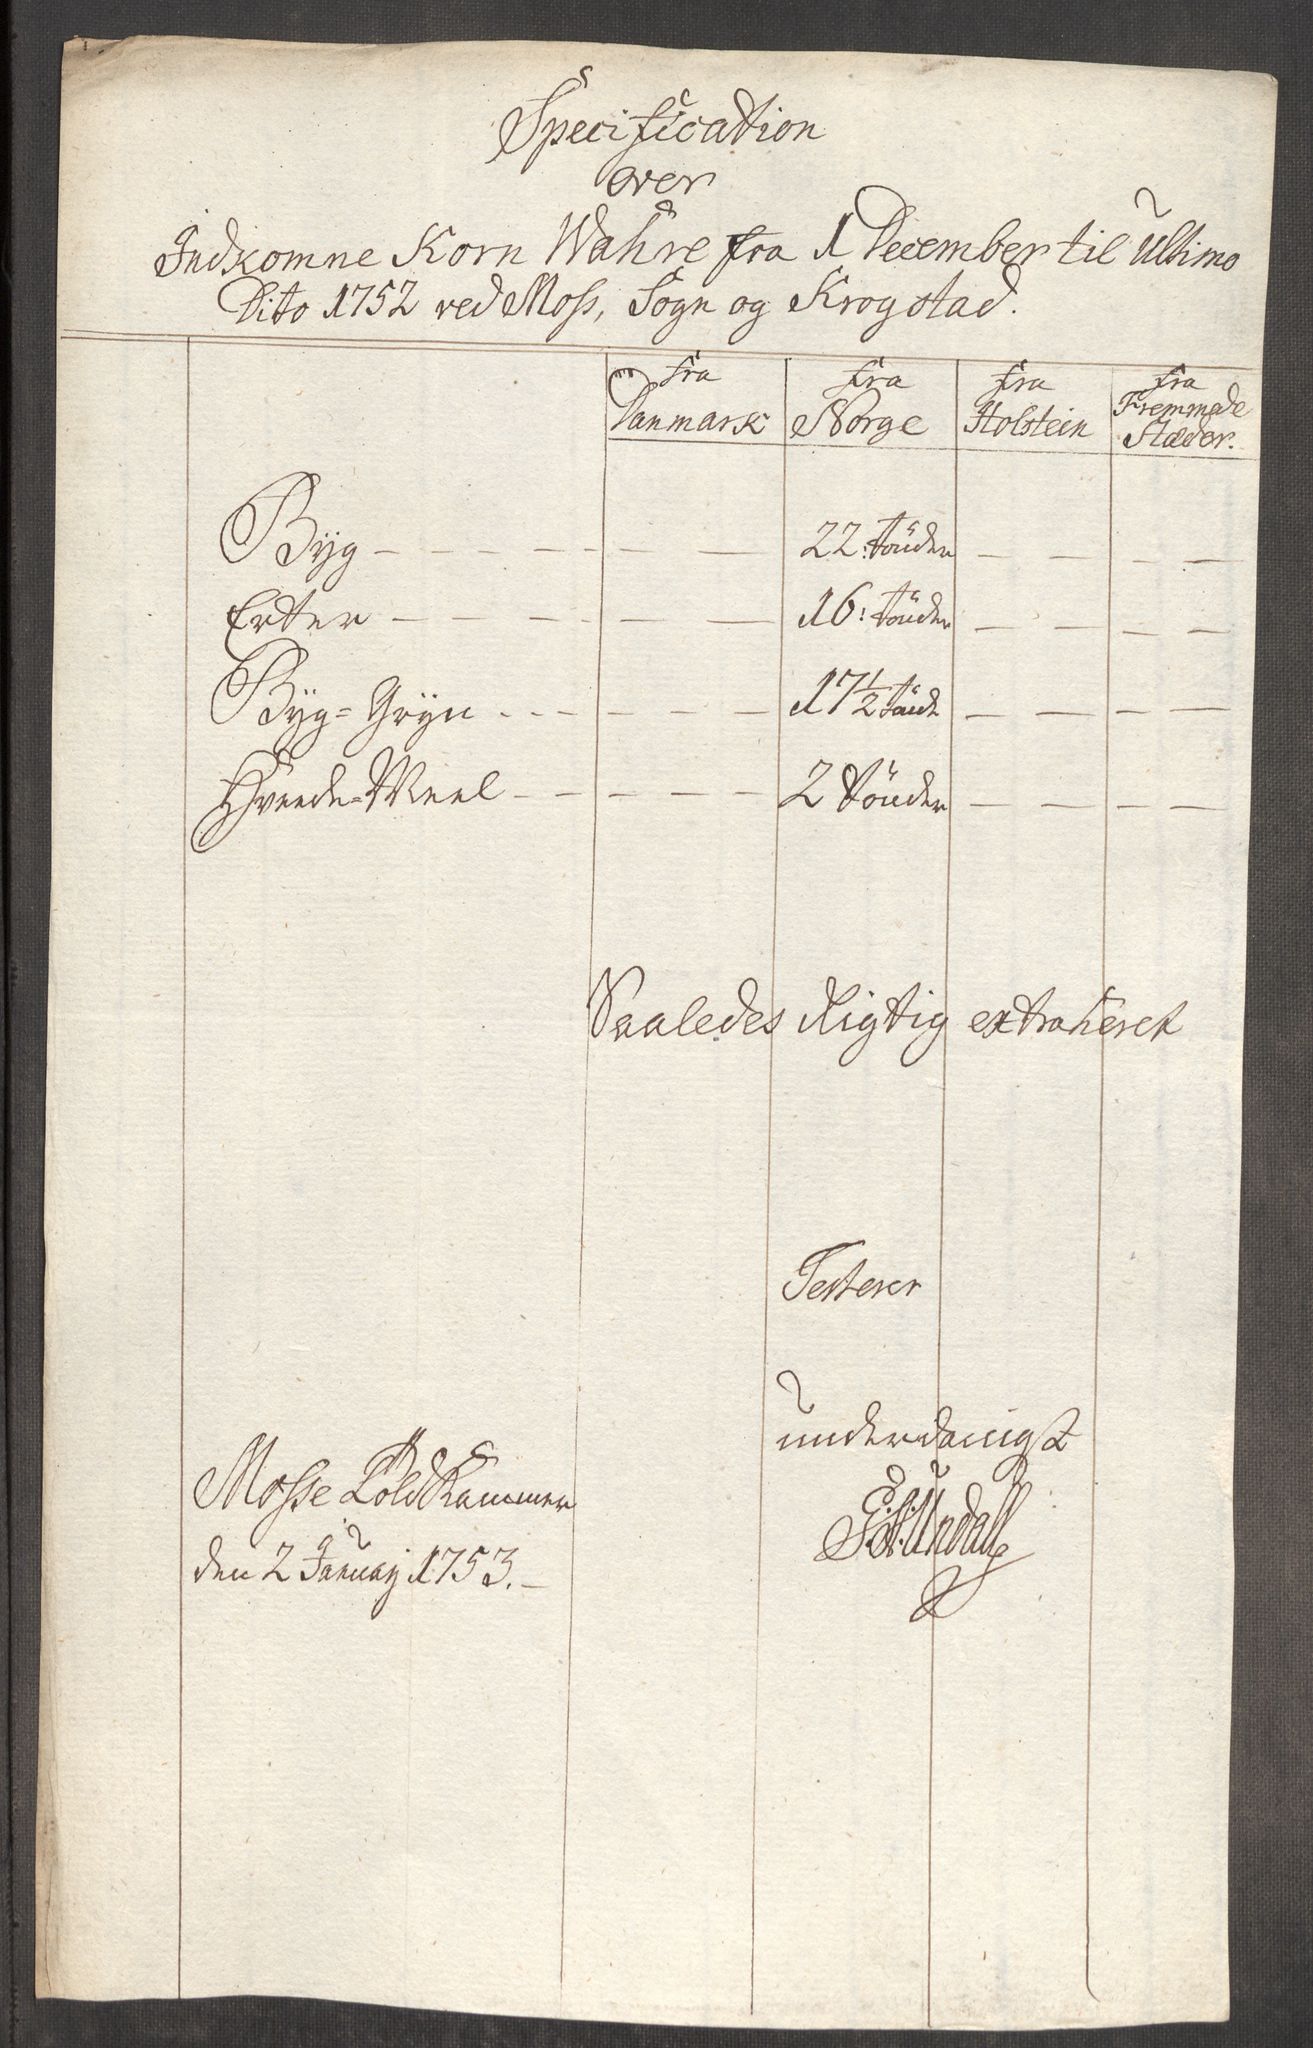 Specification
over
Indkomne Korn Wahre fra 1 December til Ultimo
Dito 1752 ved Moss, Sogn og Krogstad.
fra Danmark fra Norge fra Holstein fra Fremmede Stæder.
Byg - - - - - - 22: tönder - - - -
Erter - - - - - - 16: tönder - - - -
Byg=Gryn - - - - - - 17 1/2 tönde - - - -
Hveede=Meel - - - - - 2 tönder - - - -
Saaledes Rigtig extraheret
Testerer
underdanigst
Mosse Told Kammer
den 2 Januarj 1753.-